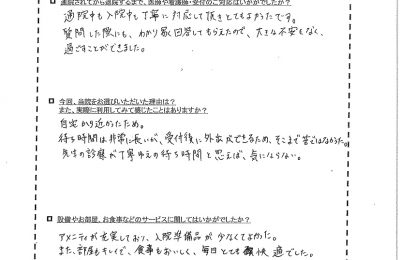 通院されてから退院するまで、医師や看護師・受付のご対応はいかがでしたか？
通院中も入院中も丁寧に対応して頂きとてもよかったです。
質問した際にも、わかり易く回答してもらえたので、大きな不安もなく、
過ごすことができました。
■今回、当院をお選びいただいた理由は？
また、実際に利用してみて感じたことはありますか？
自宅から近かったため。
待ち時間は非常に長いが、受付後に外出できるため、そこまで苦ではなかった。
先生の診察が丁寧ゆえの待ち時間と思えば、気にならない。
■設備やお部屋、お食事などのサービスに関してはいかがでしたか？
アメニティが充実しており、入院準備品が少なくてよかった。
また、部屋もキレイで、食事もおいしく、毎日とても快適でした。